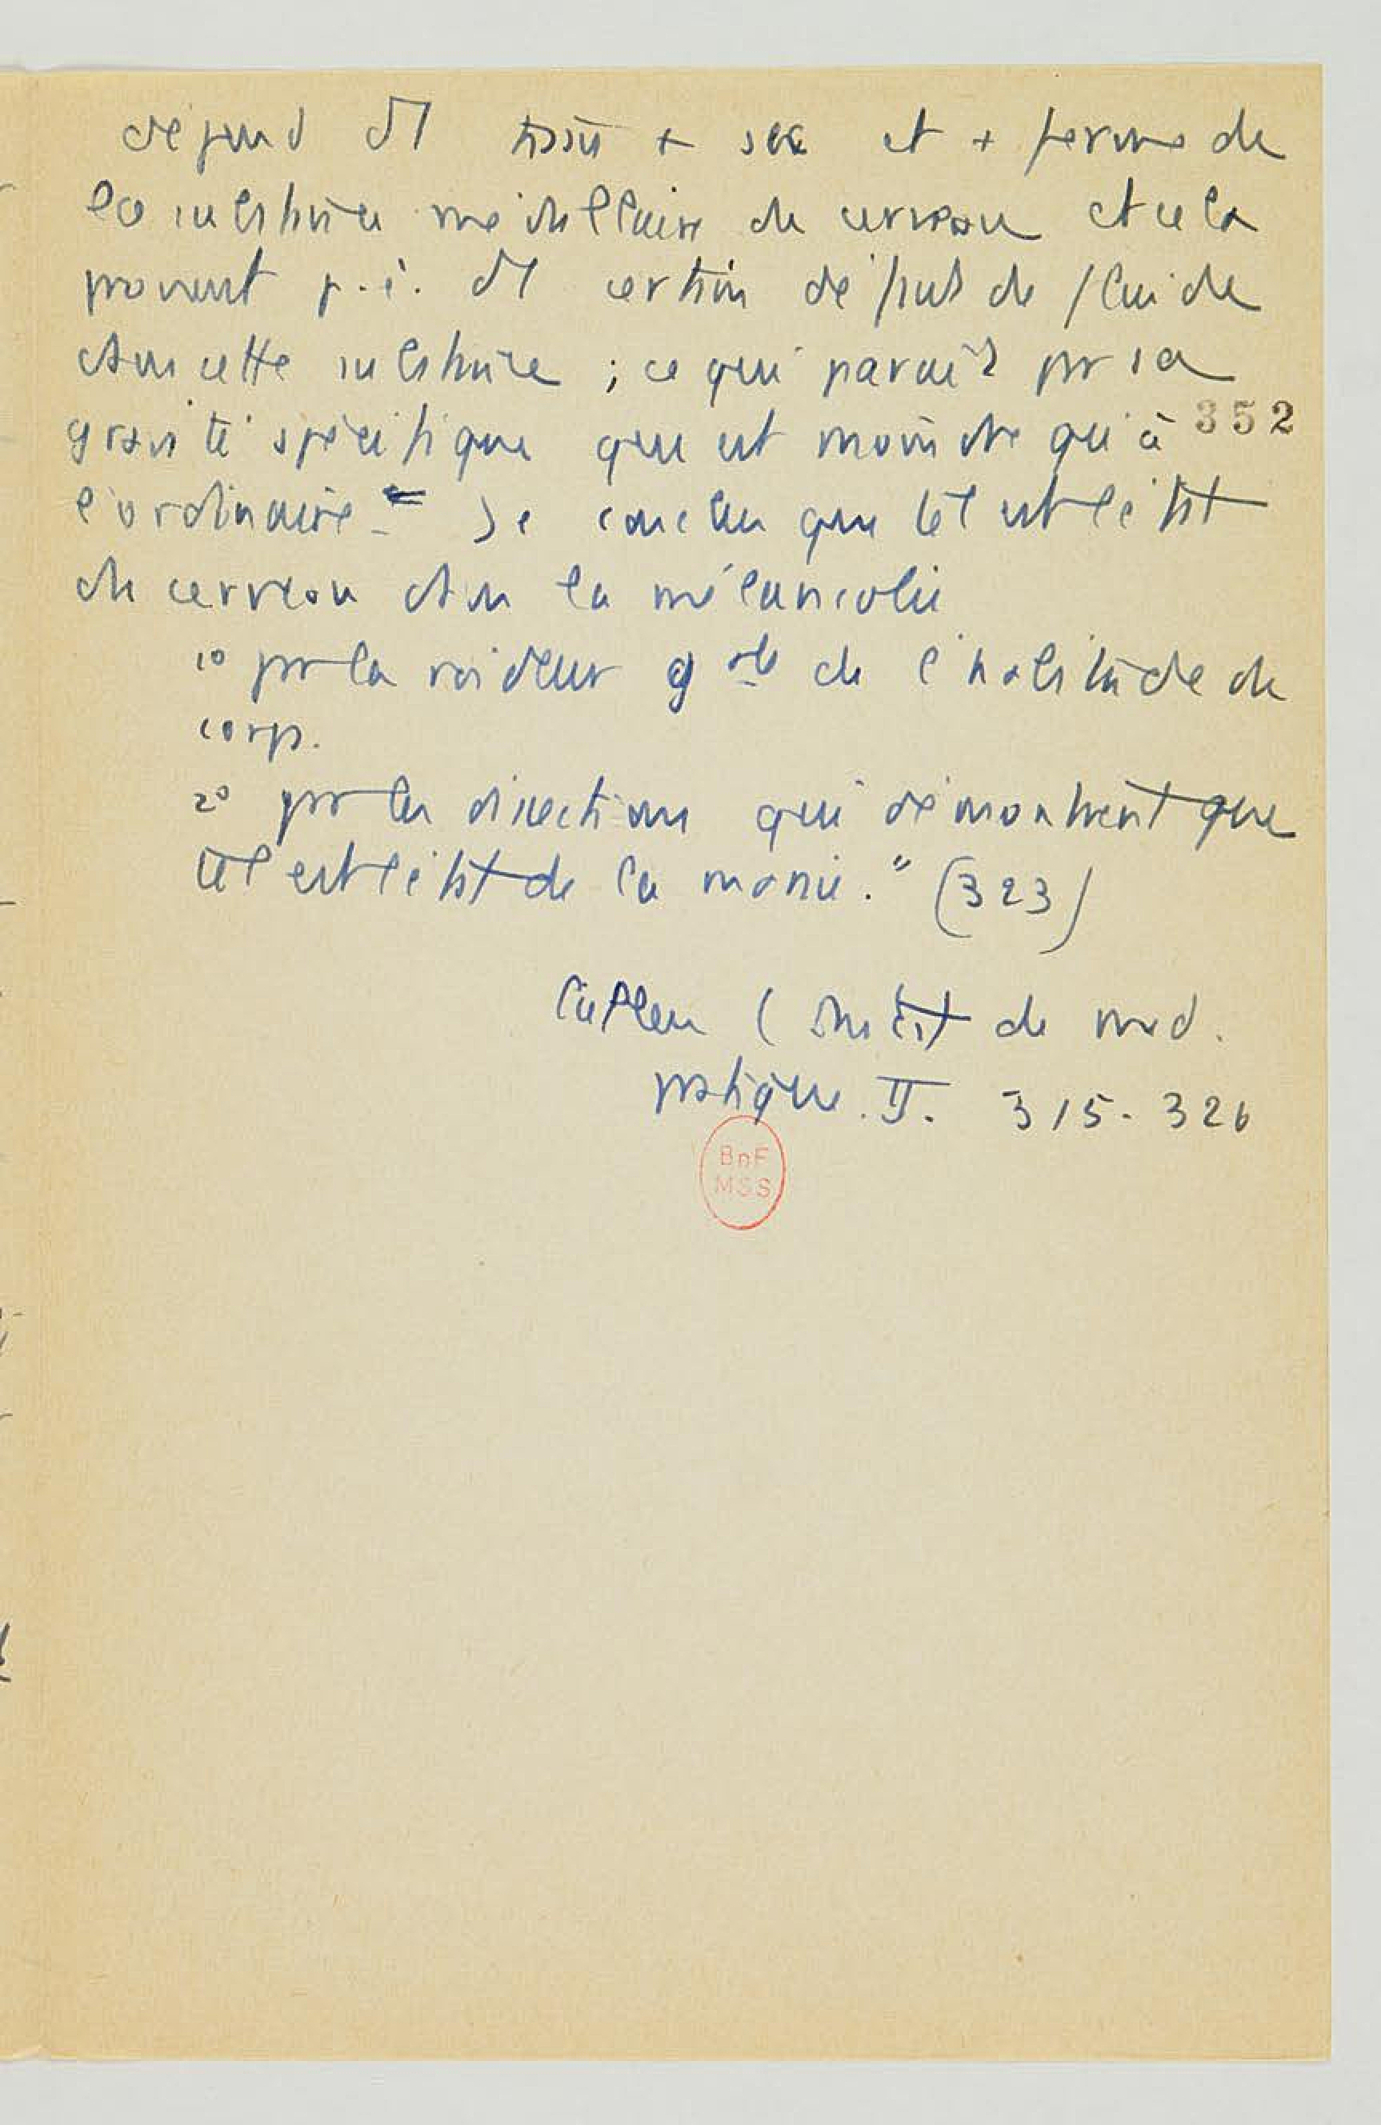 dépend d'1 tissu + sec et + ferme de
la substance médullaire du cerveau et cela
provient p.ê. d'1 certain défaut de fluide
dans cette substance ; ce qui paraît pr sa
gravité spécifique qui est moindre qu'à
352
l'ordinaire. Je conclus que tel est l'état
du cerveau dans la mélancolie
1° pr la raideur gale de l'habitude du
corps.
2° pr les dissections qui démontrent que
tel est l'état de la manie." (323)
Cullen (Instit de med.
pratique. II. 315-326
BnF
MSS